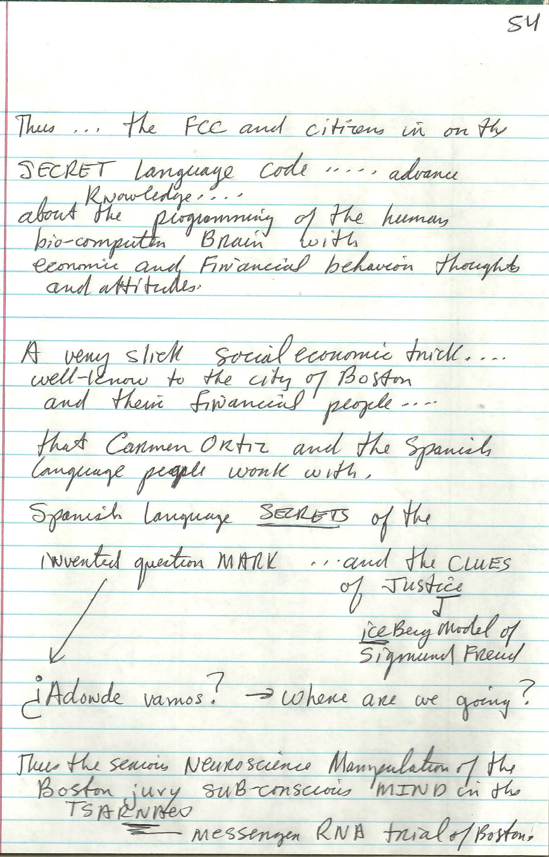 54
Thus ... the FCC and citizens in on the
SECRET Language Code ..... advance
Knowledge....
about the programming of the human
bio-computer Brain with
economic and Financial behavior thoughts
and attitudes.
A very slick social economic trick....
well-know to the city of Boston
and their financial people....
that Carmen ORtiz and the Spanish
Language people work with.
Spanish Language SECRETS of the
invented question MARK ...and the CLUES
of Justice
iceBerg Model of
Sigmund Freud
¿Adonde vamos? → Where are we going?
Thus the serious Neuroscience Manipulation of the
Boston jury SUB-conscious MIND in the
TSARNAeo
messenger RNA trial of Boston.